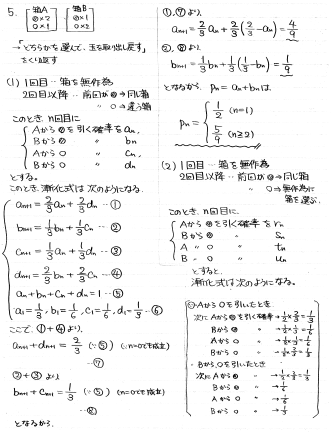 5. [箱A ◎×2 ○×1] [箱B ◎×1 ○×2]
→「どちらかを選んで、玉を取り出し戻す」
をくり返す
(1) 1回目…箱を無作為
2回目以降…前回が◎→同じ箱
〃 ○→違う箱
このとき、n回目に
Aから◎を引く確率を an,
Bから◎ 〃 bn
Aから○ 〃 cn,
Bから○ 〃 dn
とする。
このとき、漸化式は次のようになる.
an+1 = 2/3 an + 2/3 dn …①
bn+1 = 1/3 bn + 1/3 cn …②
cn+1 = 1/3 an + 1/3 dn …③
dn+1 = 2/3 bn + 2/3 cn …④
an + bn + cn + dn = 1 …⑤
a1 = 1/3, b1 = 1/6, c1 = 1/6, d1 = 1/3 …⑥
ここで、①+④より、
an+1 + dn+1 = 2/3 (∵⑤) (n=0でも成立)
…⑦
②+③より
bn+1 + cn+1 = 1/3 (∵⑤) (n=0でも成立)
…⑧
となるから、
①,⑦より、
an+1 = 2/3 an + 2/3 (2/3 - an) = 4/9
②,⑧より
bn+1 = 1/3 bn + 1/3 (1/3 - bn) = 1/9
となるから、Pn = an + bn は
Pn = { 1/2 (n=1)
5/9 (n≧2)
(2) 1回目…箱を無作為
2回目以降…前回が◎→同じ箱
〃 ○→無作為に
箱を選ぶ.
このとき、n回目に、
Aから◎を引く確率を rn
Bから◎ 〃 sn
A 〃 ○ 〃 tn
B 〃 ○ 〃 un
とすると、
漸化式は次のようになる。
Aから○を引いたとき
次に Aから◎を引く確率→1/2×2/3=1/3
Bから◎ 〃 →1/2×1/3=1/6
Aから○ 〃 →1/2×1/3=1/6
Bから○ 〃 →1/2×2/3=1/3
・Bから○を引いたとき
次に Aから◎ 〃 →1/2×2/3=1/3
Bから◎ 〃 →1/6
Aから○ 〃 →1/6
Bから○ 〃 →1/3